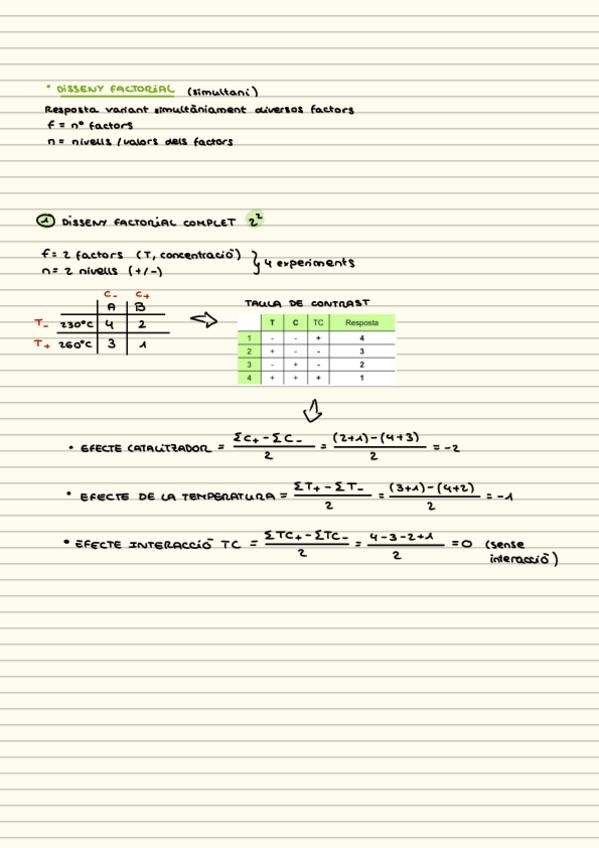 • DISSENY FACTORIAL (simultani)
Resposta variant simultàniament diversos factors
f = nº factors
n = nivells / valors dels factors
1 DISSENY FACTORIAL COMPLET 2²
f = 2 factors (T, concentració) } 4 experiments
n = 2 nivells (+/-)
C- C+
A B
T- 230ºC 4 2
T+ 260ºC 3 1
TAULA DE CONTRAST
T C TC Resposta
1 - - + 4
2 + - - 3
3 - + - 2
4 + + + 1
• EFECTE CATALITZADOR = ΣC+ - ΣC- / 2 = (2+1)-(4+3) / 2 = -2
• EFECTE DE LA TEMPERATURA = ΣT+ - ΣT- / 2 = (3+1)-(4+2) / 2 = -1
• EFECTE INTERACCIÓ TC = ΣTC+ - ΣTC- / 2 = 4-3-2+1 / 2 = 0 (sense
interacció)